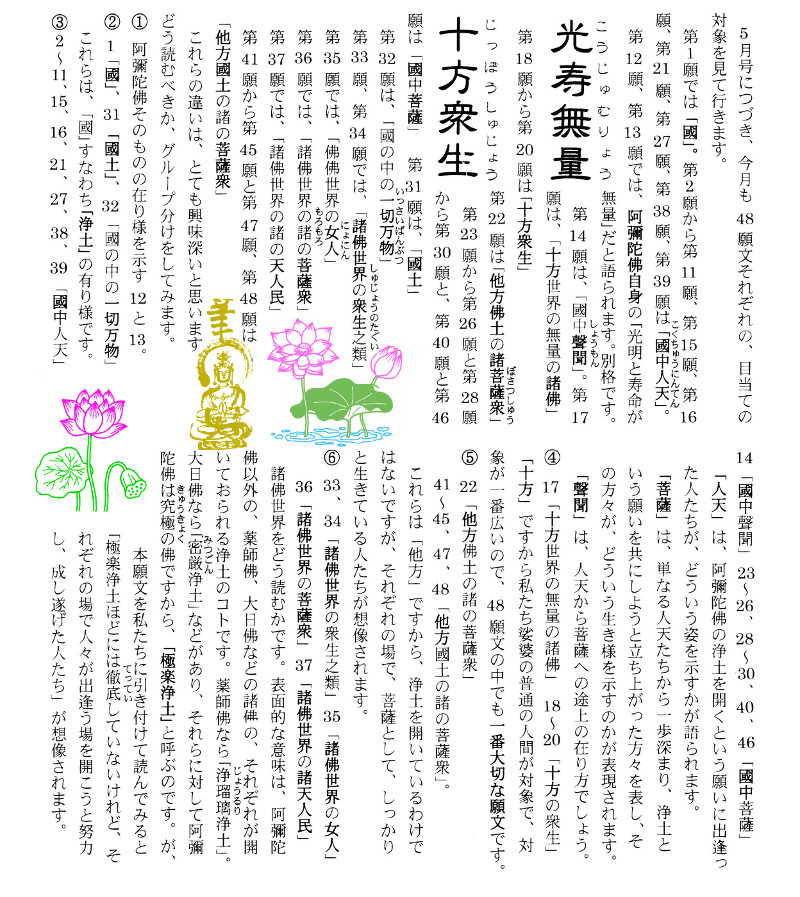 ５月号につづき、今月も 48 願文それぞれの、目当ての
対象を見て行きます。
第１願では「國」。第２願から第 11 願、第 15 願、第 16
願、第 21 願、第 27 願、第 38 願、第 39 願は「國中人天」。
こくちゅうにんてん
第 12 願、第 13 願では、阿彌陀佛自身の「光明と寿命が
無量」だと語られます。別格です。
こうじゅむりょう
光寿無量
第 14 願は、「國中聲聞」。第 17
しょうもん
願は、「十方世界の無量の諸佛」
第 18 願から第 20 願は「十方衆生」
じっぽうしゅじょう
十方衆生
第 22 願は「他方佛土の諸菩薩衆」
ぼさつしゅう
第 23 願から第 26 願と第 28 願
から第 30 願と、第 40 願と第 46
願は「國中菩薩」　第 31 願は、「國土」
第 32 願は、「國の中の一切万物」
いっさいばんぶつ
第 33 願、第 34 願では、「諸佛世界の衆生之類」
しゅじょうのたぐい
第 35 願では、「佛佛世界の女人」
にょにん
第 36 願では、「諸佛世界の諸の菩薩衆」
もろもろ
第 37 願では、「諸佛世界の諸の天人民」
第 41 願から第 45 願と第 47 願、第 48 願は
「他方國土の諸の菩薩衆」
これらの違いは、とても興味深いと思います
どう読むべきか、グループ分けをしてみます。
① 阿彌陀佛そのものの在り様を示す 12 と 13。
② 1「國」、31「國土」、32「國の中の一切万物」
これらは、「國」すなわち「浄土」の有り様です。
③ 2～11、15、16、21、27、38、39「國中人天」
14「國中聲聞」23～26、28～30、40、46「國中菩薩」
「人天」は、阿彌陀佛の浄土を開くという願いに出逢っ
た人たちが、どういう姿を示すかが語られます。
「菩薩」は、単なる人天たちから一歩深まり、浄土と
いう願いを共にしようと立ち上がった方々を表し、そ
の方々が、どういう生き様を示すのかが表現されます。
「聲聞」は、人天から菩薩への途上の在り方でしょう。
④ 17「十方世界の無量の諸佛」18～20「十方の衆生」
「十方」ですから私たち娑婆の普通の人間が対象で、対
象が一番広いので、48 願文の中でも一番大切な願文です。
⑤ 22「他方佛土の諸の菩薩衆」
41～45、47、48「他方國土の諸の菩薩衆」。
これらは「他方」ですから、浄土を開いているわけで
はないですが、それぞれの場で、菩薩として、しっかり
と生きている人たちが想像されます。
⑥ 33、34「諸佛世界の衆生之類」35「諸佛世界の女人」
36「諸佛世界の菩薩衆」37「諸佛世界の諸天人民」
諸佛世界をどう読むかです。表面的な意味は、阿彌陀
佛以外の、薬師佛、大日佛などの諸佛の、それぞれが開
いておられる浄土のコトです。薬師佛なら「浄瑠璃浄土」。
じょうるり
大日佛なら「密厳浄土」などがあり、それらに対して阿彌
みつごん
陀佛は究極の佛ですから、「極楽浄土」と呼ぶのです。が、
きゅうきょく
本願文を私たちに引き付けて読んでみると
「極楽浄土ほどには徹底していないけれど、そ
てってい
れぞれの場で人々が出逢う場を開こうと努力
し、成し遂げた人たち」が想像されます。